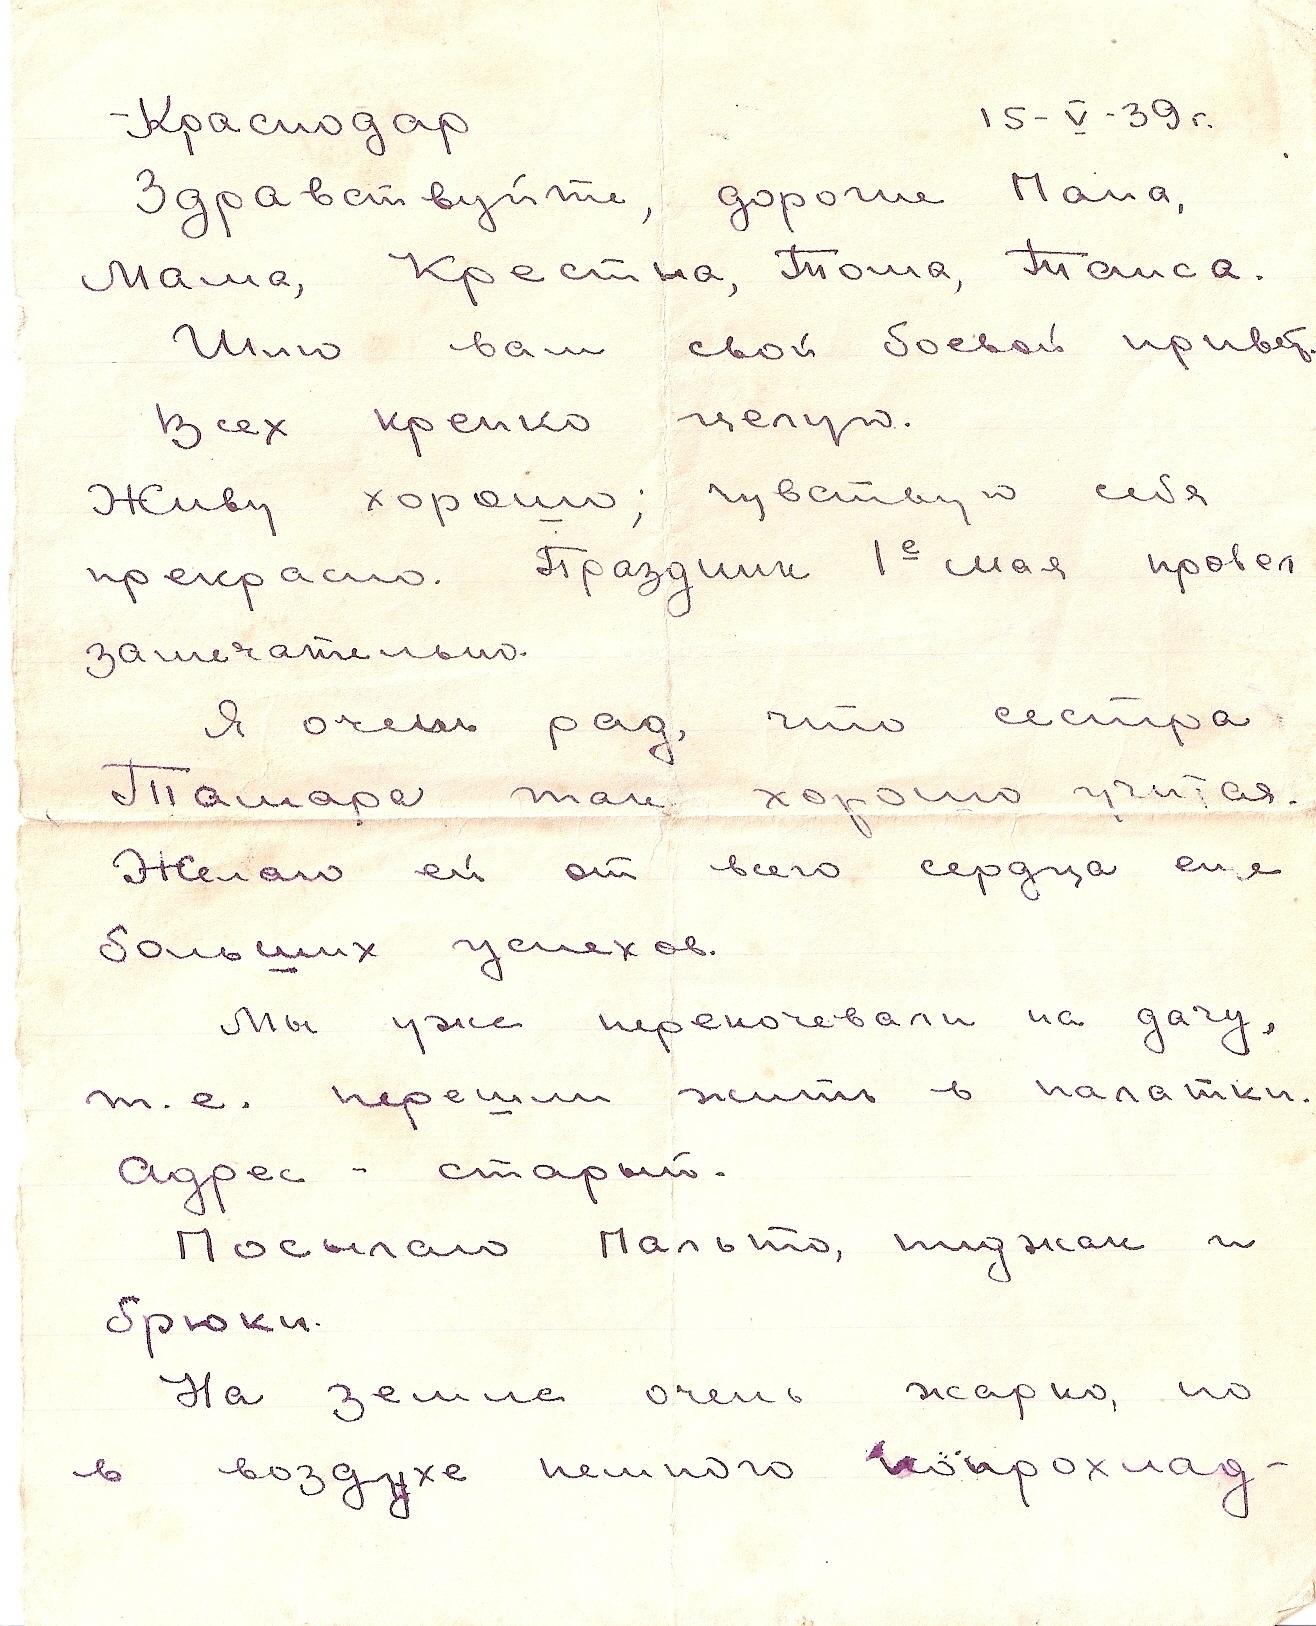 Краснодар 15-V-39 г.
Здравствуйте, дорогие Папа,
Мама, Крестна, Тома, Таиса.
Шлю вам свой боевой привет.
Всех крепко целую.
Живу хорошо; чувствую себя
прекрасно. Праздник 1е мая провел
замечательно.
Я очень рад, что сестра
Тамара так хорошо учится.
Желаю ей от всего сердца еще
больших успехов.
Мы уже перекочевали на дачу,
т.е. перешли жить в палатки.
Адрес - старый.
Посылаю Пальто, пиджак и
брюки.
На земле очень жарко, но
в воздухе немного попрохлад-